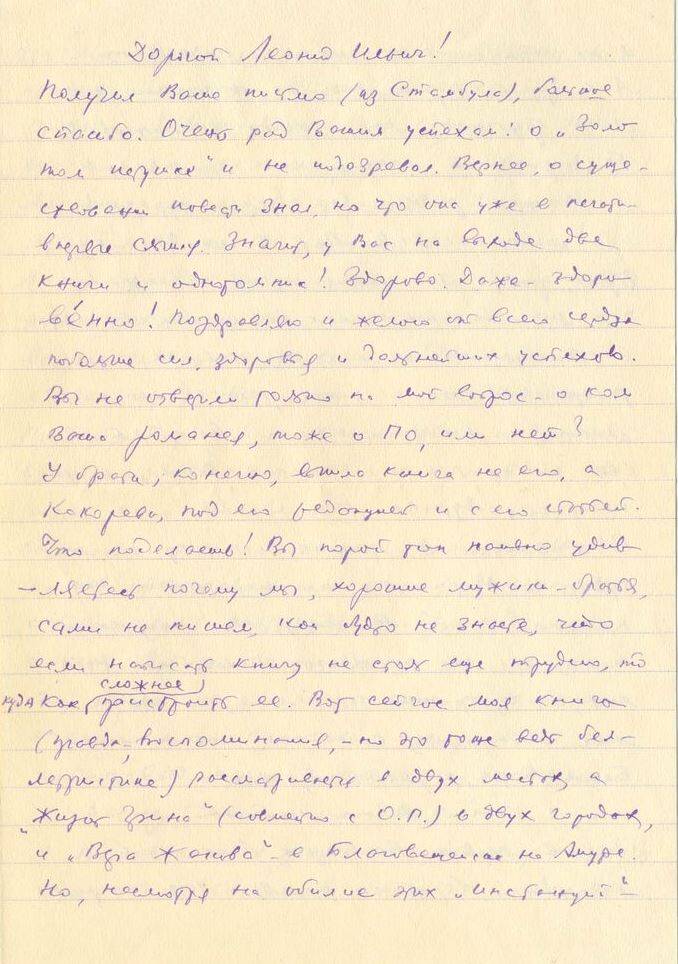 Дорогой Леонид Ильич!
Получил Ваше письмо (из Стамбула), большое
спасибо. Очень рад Вашим успехам: о „Золо
том петушке“ и не подозревал. Вернее, о суще-
ствовании повести знал, но что она уже в печати-
впервые слышу. Значит, у Вас на выходе две
книги и однотомник! Здорово. Даже - здоро
ве́нно! Поздравляю и желаю от всего сердца
побольше сил, здоровья и дальнейших успехов.
Вы не ответили только на мой вопрос - о ком
Ваша, тоже о По, или нет?
У брата, конечно, вышла книга не его, а
Кокорева, под его редакцией и с его статьей.
Что поделаешь! Вы порой так наивно удив
-ляетесь почему мы, хорошие мужики-братья,
сами не пишем, как будто не знаете, что
если написать книгу не столь еще трудно, то
сложнее
куда как пристроить ее. Вот сейчас моя книга
(правда, воспоминания, - но это тоже ведь бел-
летристика) рассматривается в двух местах, а
„Жизнь Грина“ (совместно с О.П.) в двух городах,
и „Вера Жанова“ - в Благовещенске на Амуре.
Но, несмотря на обилие этих „инстанций“ -